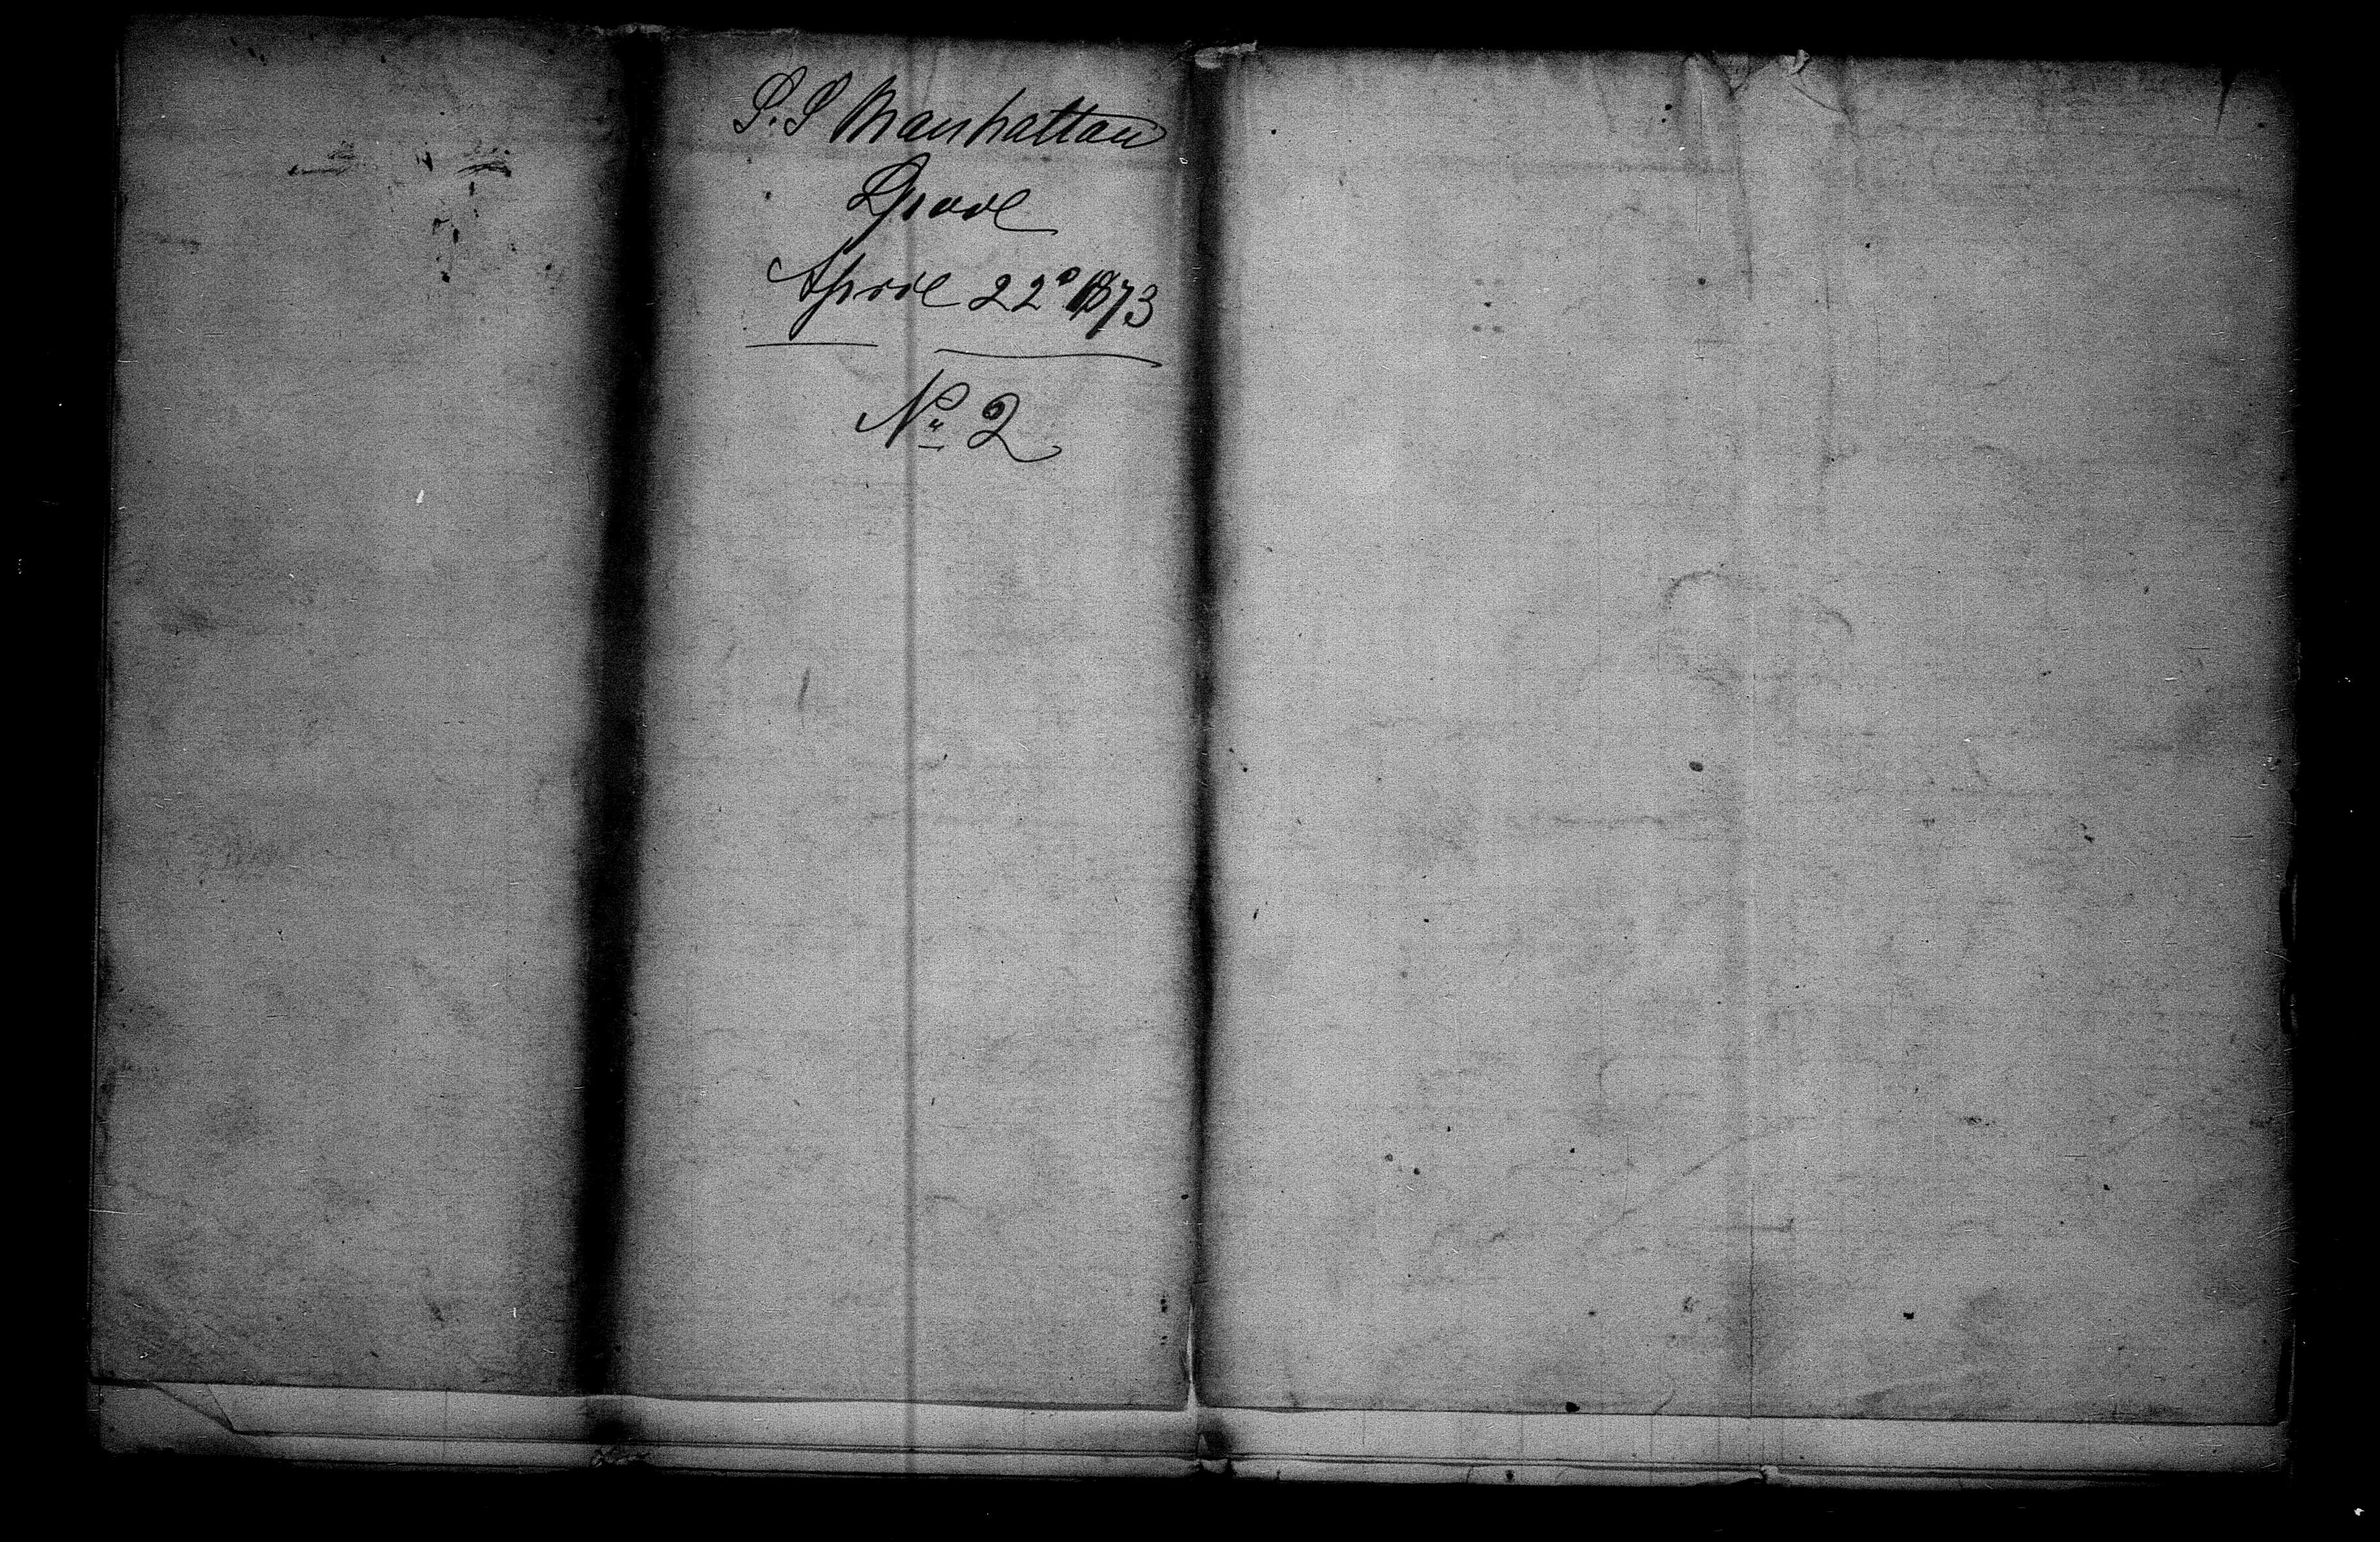 S.S Manhattan
Lpool
April 22d 1873
No 2